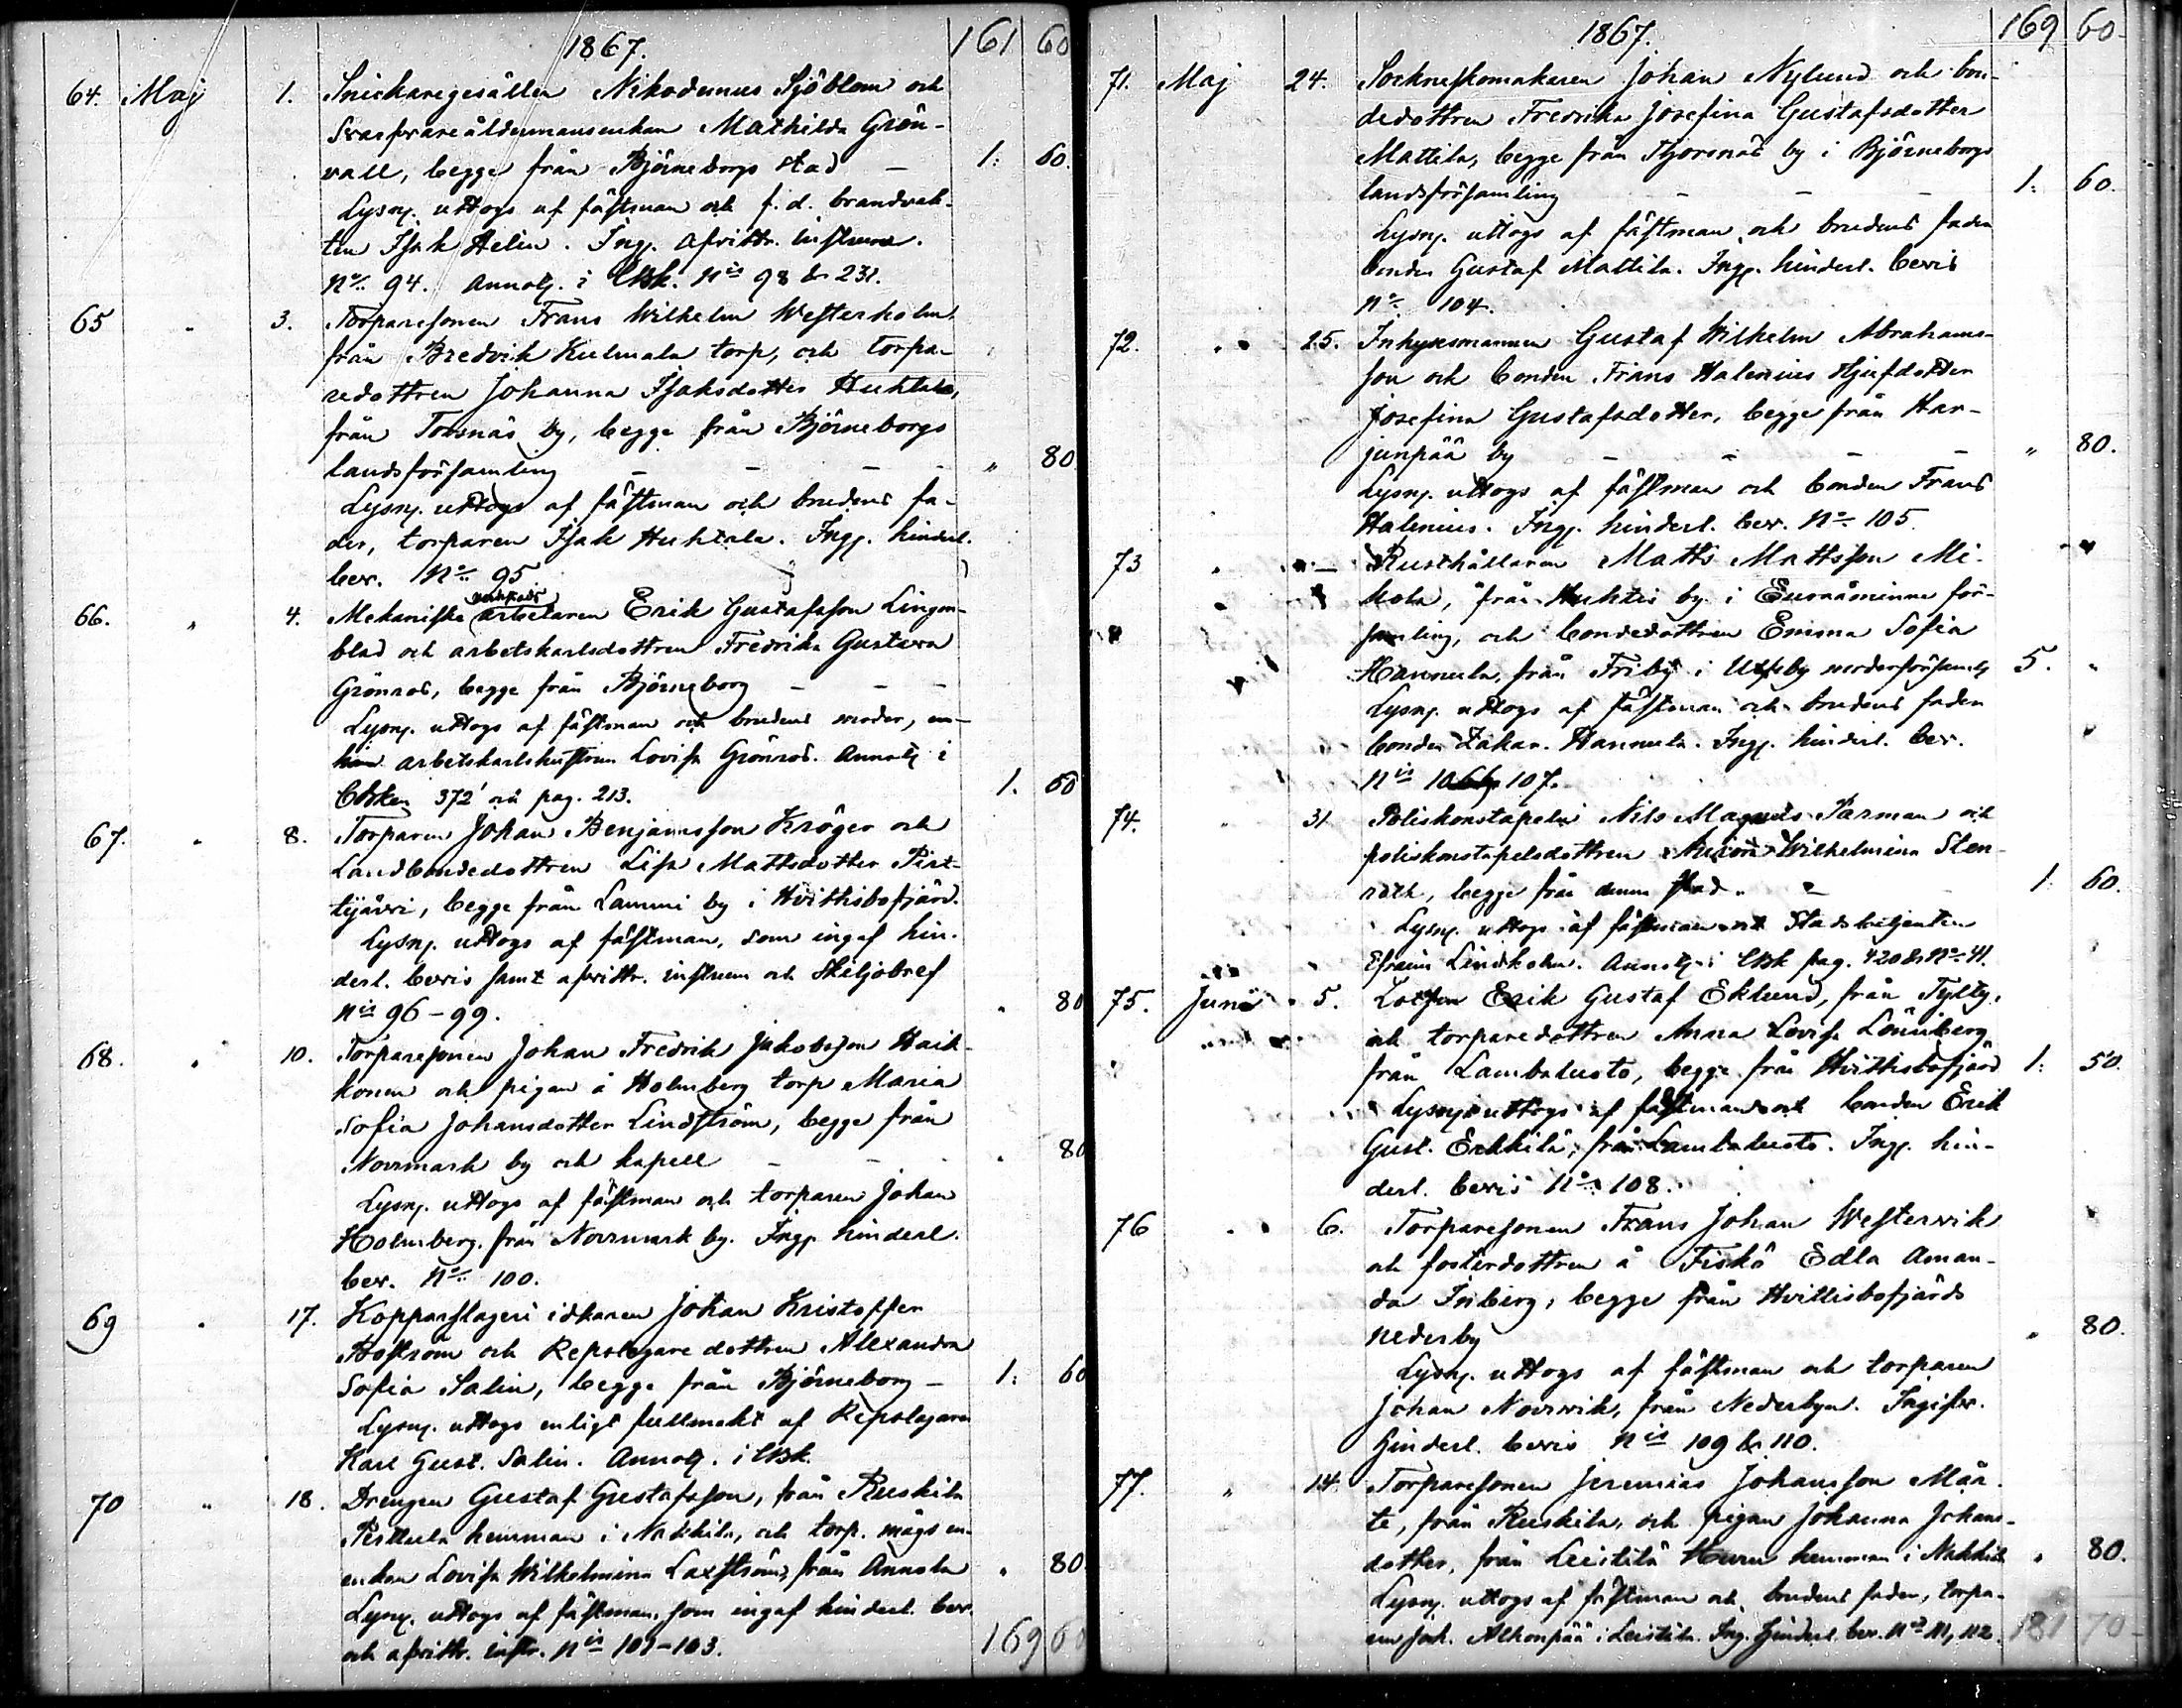 1867. 161 60
64. Maj 1. Snickaregesällen Nikodemus Sjöblom och
Svarfvareåldermansenkan Mathilda Grön-
vall, begge från Björneborgs stad — 1: 60.
Lysng. uttogs af fästman och f. d. brandvak-
ten Isak Helin. Ing. afvittr. instrum.
No 94. Annotg. i Cbk. Nis 98 & 231.
65 " 3. Torparesonen Frans Wilhelm Westerholm,
från Bredvik Kulmala torp, och torpa-
redottren Johanna Isaksdotter Huhtala,
från Torsnäs by, begge från Björneborgs
landsförsamling — — — " 80
Lysng. uttogs af fästman och brudens fa-
der, torparen Isak Huhtala. Ingg. hinderl.
bev. No 95.
66. " 4. Mekaniska verkstads arbetaren Erik Gustafsson Lingon-
blad och arbetskarlsdottren Fredrika Gustava
Grönroos, begge från Björneborg — — —
Lysng. uttogs af fästman och brudens moder, en-
arbetskarlshustrun Lovisa Grönroos. Annotg i
Cbken 372 och pag. 213. 1. 60
67. " 8. Torparen Johan Benjaminsson Kröger och
Landbondedottren Lisa Mattsdotter Pirt-
tijärvi, begge från Lammi by i Hvittisbofjärd.
Lysng. uttogs af fästman, som ingaf hin-
derl. bevis samt afvittr. instrum och Skiljobref
Nis 96-99. " 80
68. " 10. Torparesonen Johan Fredrik Jakobsson Haik-
konen och pigan å Holmberg torp Maria
Sofia Johansdotter Lindström, begge från
Norrmark by och kapell — — " 80
Lysng. uttogs af fästman och torparen Johan
Holmberg, från Norrmark by. Ingg. hinderl.
bev. No 100.
69 " 17. Kopparslageri idkaren Johan Kristoffer
Boström och Repslagaredottren Alexandra
Sofia Salin, begge från Björneborg — 1: 60
Lysng. uttogs enligt fullmakt af Repslagaren
Karl Gust. Salin. Annotg. i Cbk.
70 " 18. Drengen Gustaf Gustafsson, från Ruskila
hemman i Nakkila, och torp. mågs en-
enkan Lovisa Wilhelmina Laxström, från Annola " 80
Lysng. uttogs af fästman, som ingaf hinderl. bev.
och afvittr. instr. Nis 101-103. 169 60
1867. 169 60
71. Maj 24. Sockneskomakaren Johan Nylund och bon-
dedottren Fredrika Josefina Gustafsdotter
Mattila, begge från Thorsnäs by i Björneborgs
landsförsamling — — — 1: 60.
Lysng. uttogs af fästman och brudens fader
bonden Gustaf Mattila. Ingg. hinderl. bevis
No 104.
72. " 25. Inhysesmannen Gustaf Wilhelm Abrahams-
son och bonden Frans Halenius Styfdotter
Josefina Gustafsdotter, begge från Har-
junpää by — — — — " 80.
Lysng. uttogs af fästman och bonden Frans
Halenius. Ingg. hinderl. bev. No 105.
73 " — Rusthållaren Matts Mattsson Mi-
kola, från Huhtis by i Euraåminne för-
samling, och bondedottren Emma Sofia
Hannula, från Friby i Ulfsby moderförsamlg 5. "
Lysng. uttogs af fästman och brudens fader
bonden Zakar. Hannula. Ingg. hinderl. bev.
Nis 106 107.
74. " 31 Poliskonstapeln Nils Magnus Parman och
poliskonstapelsdottren Wilhelmina Sten-
roth, begge från denna stad. — — 1. 60.
Lysng. uttogs af fästman och Stadsbetjenten
Efraim Lindholm. Annotg i Cbk pag. 420 & No 41.
75. Juni 5. Erik Gustaf Eklund, från Tyltty,
och torparedottren Anna Lovisa Lönnberg
från Lambaluoto, begge från Hvittisbofjärd 1: 50.
Lysng. uttogs af fästman och bonden Erik
Gust. Erkkilä, från Lambaluoto. Ingg. hin-
derl. bevis No 108.
76 " 6. Torparesonen Frans Johan Westervik
och fosterdottren å Fiskö Edla Aman-
da Friberg, begge från Hvittisbofjärds
nederby " 80.
Lysng. uttogs af fästman och torparen
Johan Norrvik, från Nederbyn.
hinderl. bevis Nis 109 & 110.
77. " 14. Torparesonen Jeremias Johansson Mää-
te, från Ruskila, och pigan Johanna Johans-
dotter, från Leistilä hemman i Nakkila " 80.
Lysng. uttogs af fästman och brudens fader, torpa-
ren Joh. Alhonpää i Leistilä. Ing. hinderl. bev. Nis 111, 112. 181 70